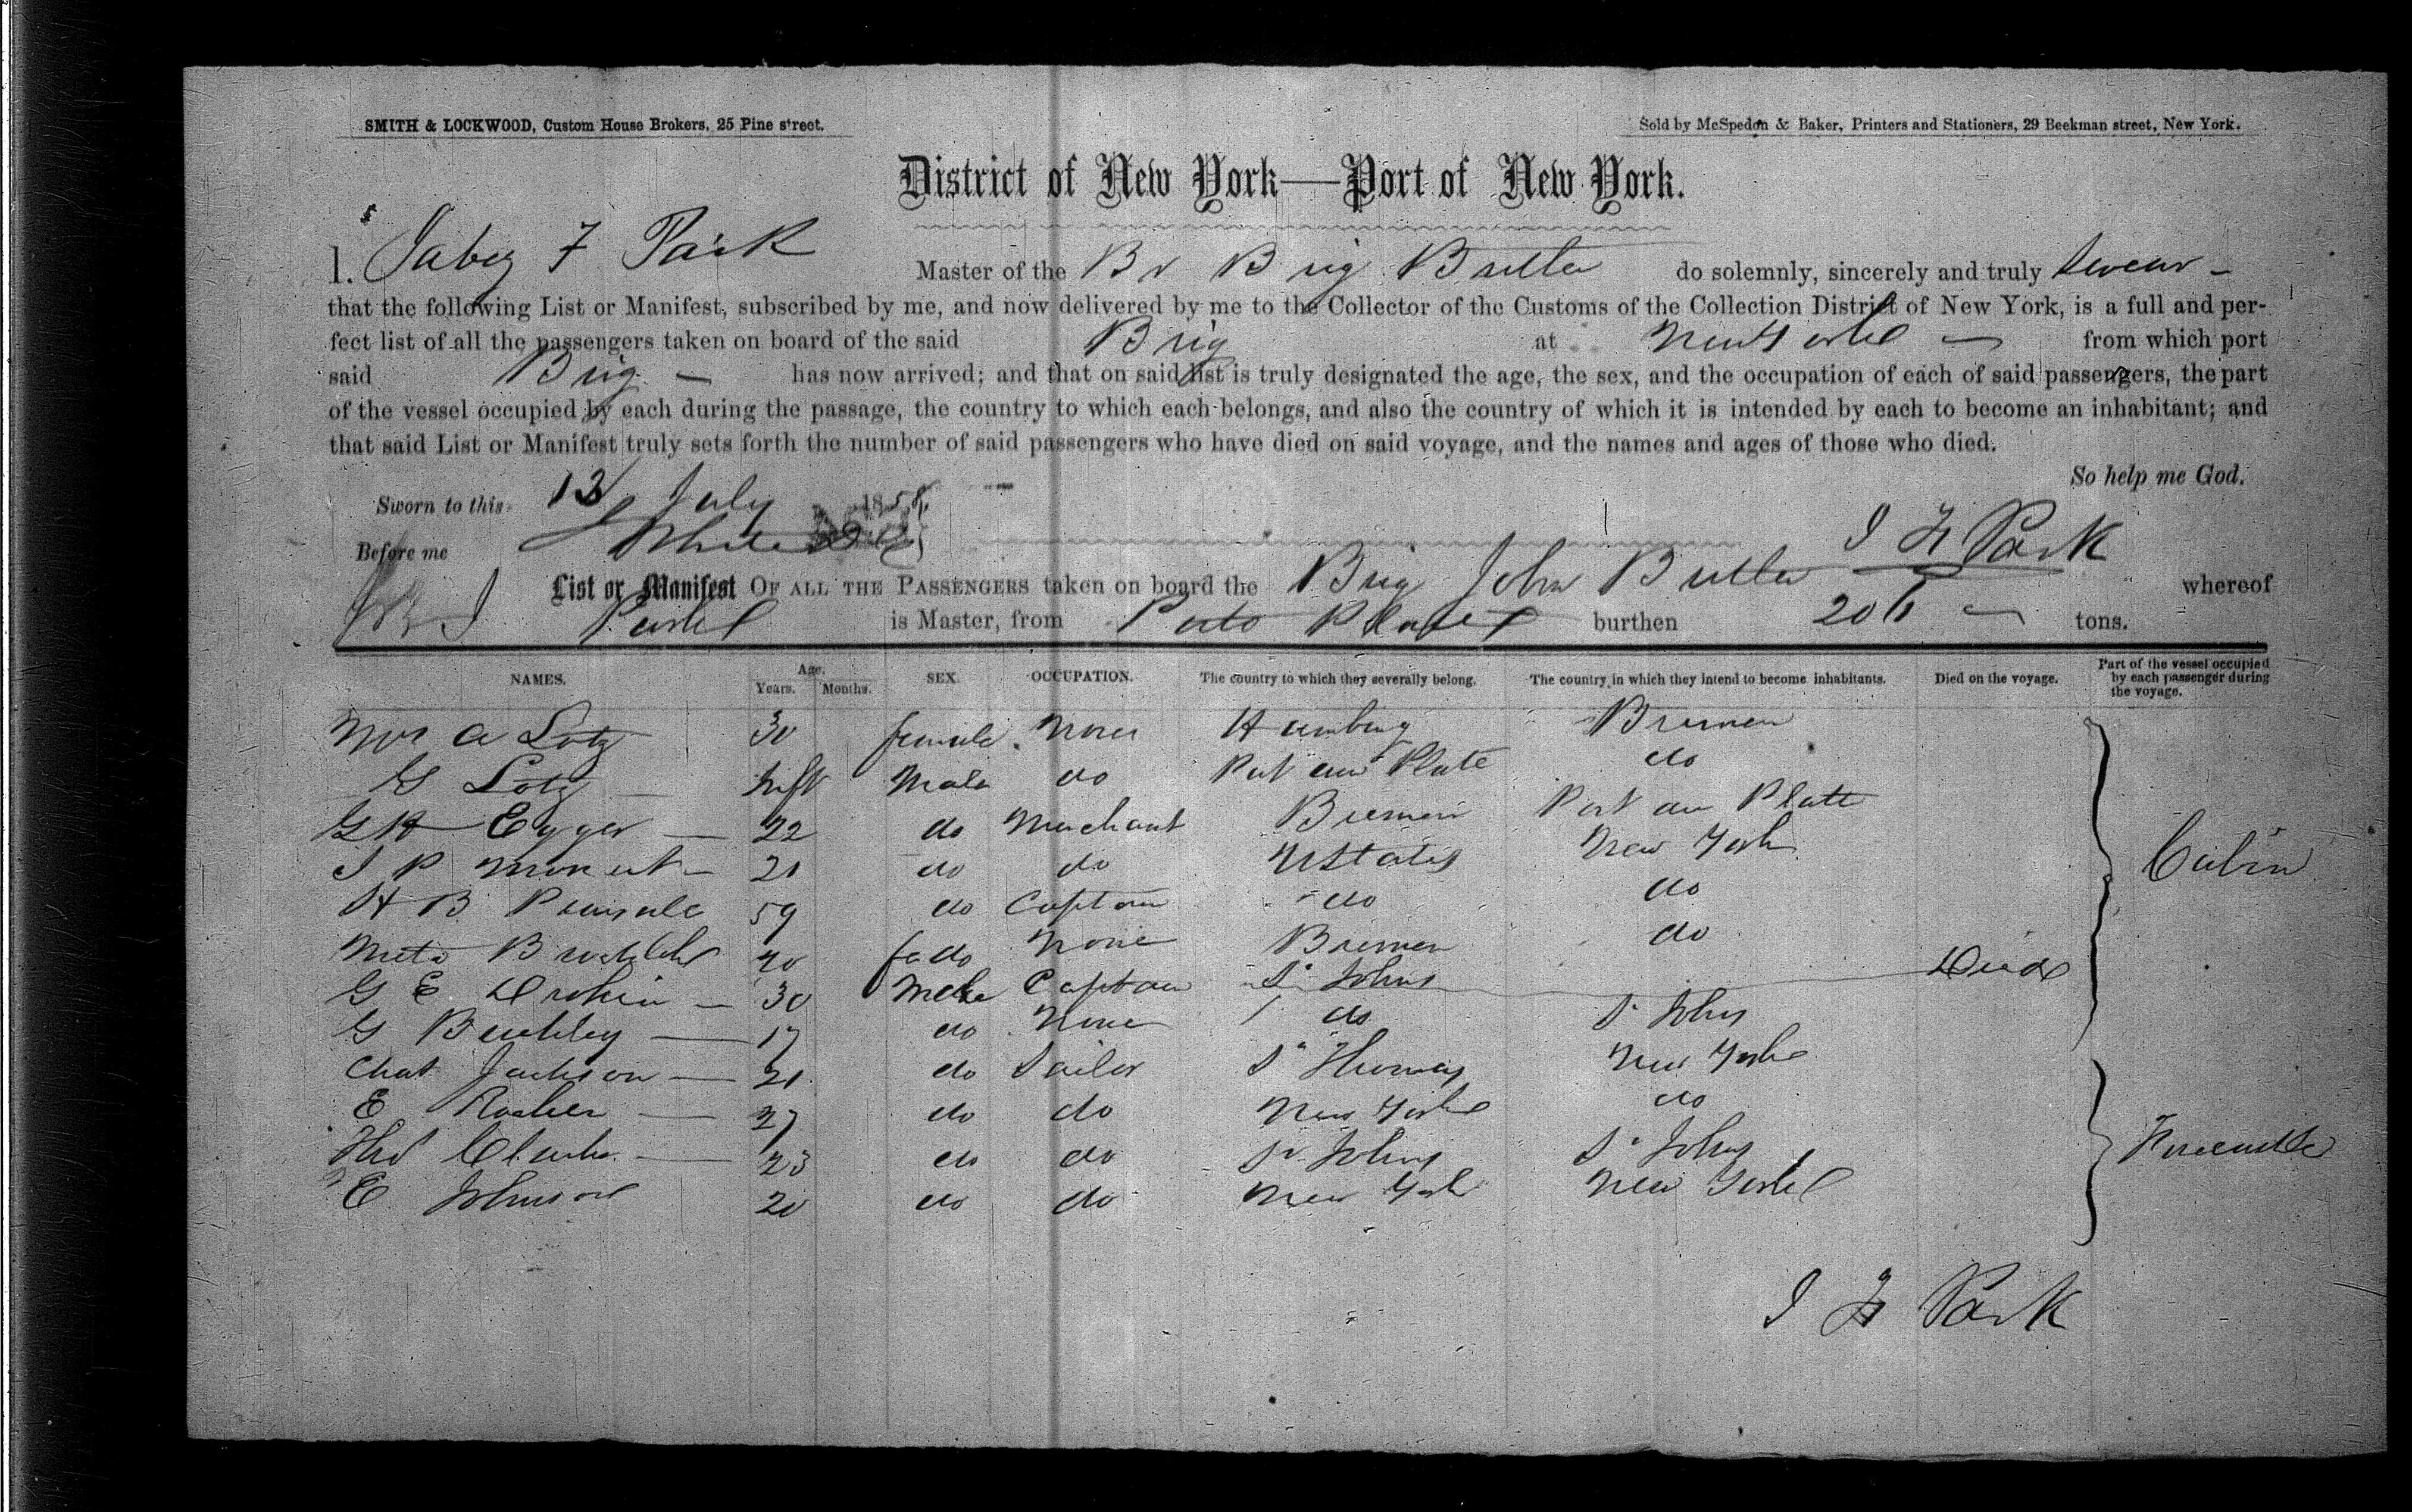 SMITH & LOCKWOOD, Custom House Brokers, 25 Pine street.
Sold by McSpedon & Baker, Printers and Stationers, 29 Beekman street, New York.
District of New York—Port of New York.
I, Jabez F Park Master of the Br Brig Butler do solemnly, sincerely and truly swear
that the following List or Manifest, subscribed by me, and now delivered by me to the Collector of the Customs of the Collection District of New York, is a full and per-
fect list of all the passengers taken on board of the said Brig at New York from which port
said Brig has now arrived; and that on said list is truly designated the age, the sex, and the occupation of each of said passengers, the part
of the vessel occupied by each during the passage, the country to which each belongs, and also the country of which it is intended by each to become an inhabitant; and
that said List or Manifest truly sets forth the number of said passengers who have died on said voyage, and the names and ages of those who died.
So help me God.
Sworn to this 13 July 1858
Before me
J F Park
List or Manifest OF ALL THE PASSENGERS taken on board the Brig John Butler whereof
Park is Master, from Porto Plata burthen 206 tons.
NAMES. Age. Years. Months. SEX. OCCUPATION. The country to which they severally belong. The country in which they intend to become inhabitants. Died on the voyage. Part of the vessel occupied by each passenger during the voyage.
Mrs A Lotz 30 female None Hamburg Bremen
G Lotz Inft Male do Port au Plate do
G H Egger 22 do Merchant Bremen Port au Platte
J P 21 do do UStates New York
H B 59 do Captain do do
Meta fe do None Bremen do
G E 30 Male Captain St Johns Died
G 17 do None do St Johns
Chas Jackson 21 do Sailor St Thomas New York
E 27 do do New York do
Thos Clark 23 do do St Johns St Johns
E Johnson 20 do do New York New York
Cabin
Forecastle
J F Park